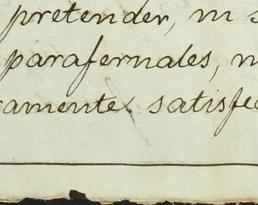 pretender, ni s
parafernales, n
camente satisfec